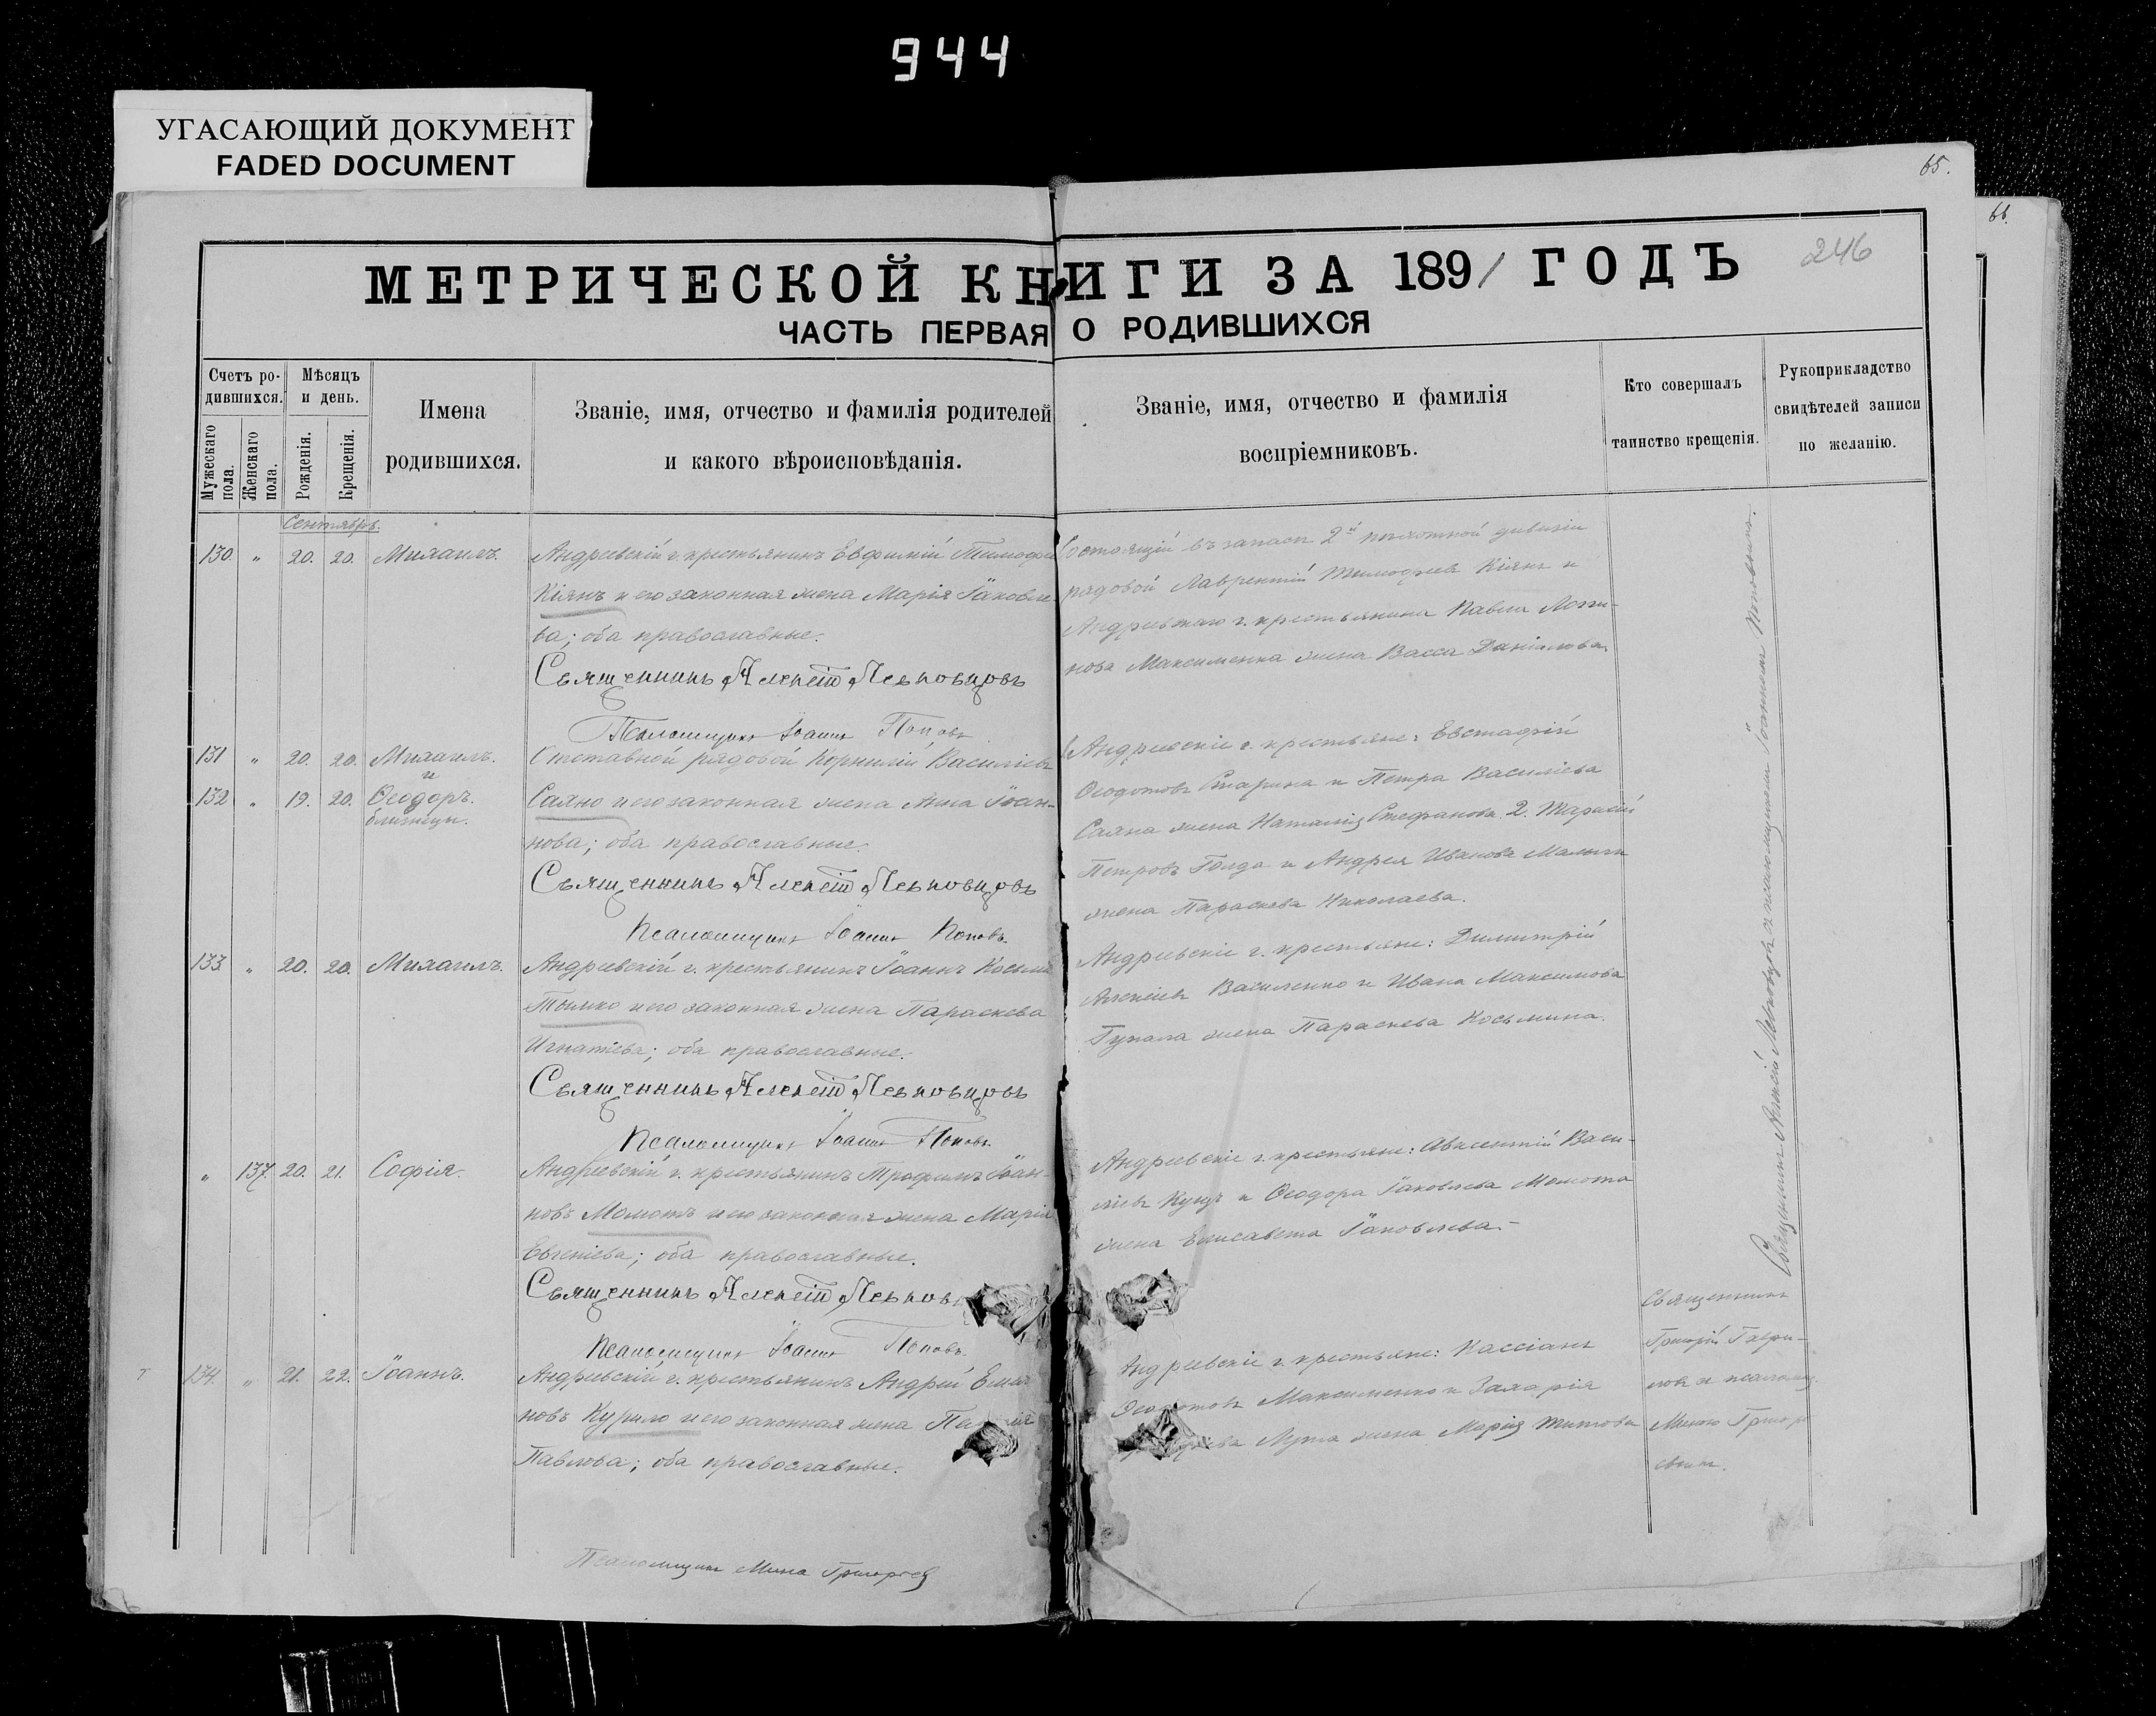 944
УГАСАЮЩИЙ ДОКУМЕНТ
FADED DOCUMENT
65.
66.
246
МЕТРИЧЕСКОЙ КНИГИ ЗА 1891 ГОДЪ
ЧАСТЬ ПЕРВАЯ О РОДИВШИХСЯ
Счетъ ро-
дившихся.
Мужескаго
пола.
Женскаго
пола.
Мѣсяцъ
и день.
Рожденія.
Крещенія.
Имена
родившихся.
Званіе, имя, отчество и фамилія родителей
и какого вѣроисповѣданія.
Званіе, имя, отчество и фамилія
воспріемниковъ.
Кто совершалъ
таинство крещенія.
Рукоприкладство
свидѣтелей записи
по желанію.
Сентябрь.
130. " 20. 20. Михаилъ.
Андреевскій г. крестьянинъ Евфимій Тимофее
Кіянъ и его законная жена Марія Іаковле-
ва; оба православные.
Священникъ Алексій Левковцовъ
Псаломщикъ Іоаннъ Поповъ
Состоящій въ запасѣ 2й пѣхотной дивизіи
рядовой Лаврентій Тимофеевъ Кіянъ и
Андреевскаго г. крестьянина Павла Логи-
нова Максименка жена Васса Даніилова.
131 " 20. 20. Михаилъ.
и
132 " 19. 20. Ѳеодоръ.
близнецы.
Отставной рядовой Корнилій Василіевъ
Саяно и его законная жена Анна Іоан-
нова; оба православные.
Священникъ Алексій Левковцовъ
Псаломщикъ Іоаннъ Поповъ.
Андреевскіе г. крестьяне: Евстафій
Ѳеодотовъ Старина и Петра Василіева
Саяна жена Наталія Стефанова. 2. Тарасій
Петровъ Голда и Андрея Иванова
жена Параскева Николаева.
133 " 20. 20. Михаилъ.
Андреевскій г. крестьянинъ Іоаннъ Косьминъ
Тымко и его законная жена Параскева
Игнатіева; оба православные.
Священникъ Алексій Левковцовъ
Псаломщикъ Іоаннъ Поповъ.
Андреевскіе г. крестьяне: Димитрій
Алексіевъ Василенко и Ивана Максимова
Гупала жена Параскева Косьмина.
" 137. 20. 21. Софія.
Андреевскій г. крестьянинъ Трофимъ Іоан-
новъ Момотъ и его законная жена Марія
Евгеніева; оба православные.
Священникъ Алексій Левков
Псаломщикъ Іоаннъ Поповъ.
Андреевскіе г. крестьяне: Авксентій Васи-
ліевъ Куцъ и Ѳеодора Іаковлева Момота
жена Елисавета Іаковлева.
134. " 21. 22. Іоаннъ.
Андреевскій г. крестьянинъ Андрей
новъ Курило и его законная жена
Павлова; оба православные.
Андреевскіе г. крестьяне: Кассіанъ
Ѳеодотовъ Максименко и Захарія
жена Марія Титова
Священникъ
Григорій Гаври-
ловъ и псаломщ.
Миною Григорь
евымъ.
Псаломщикъ Мина Григорьевъ
Священникъ Алексій Левковцовъ съ псаломщикомъ Іоанномъ Поповымъ.